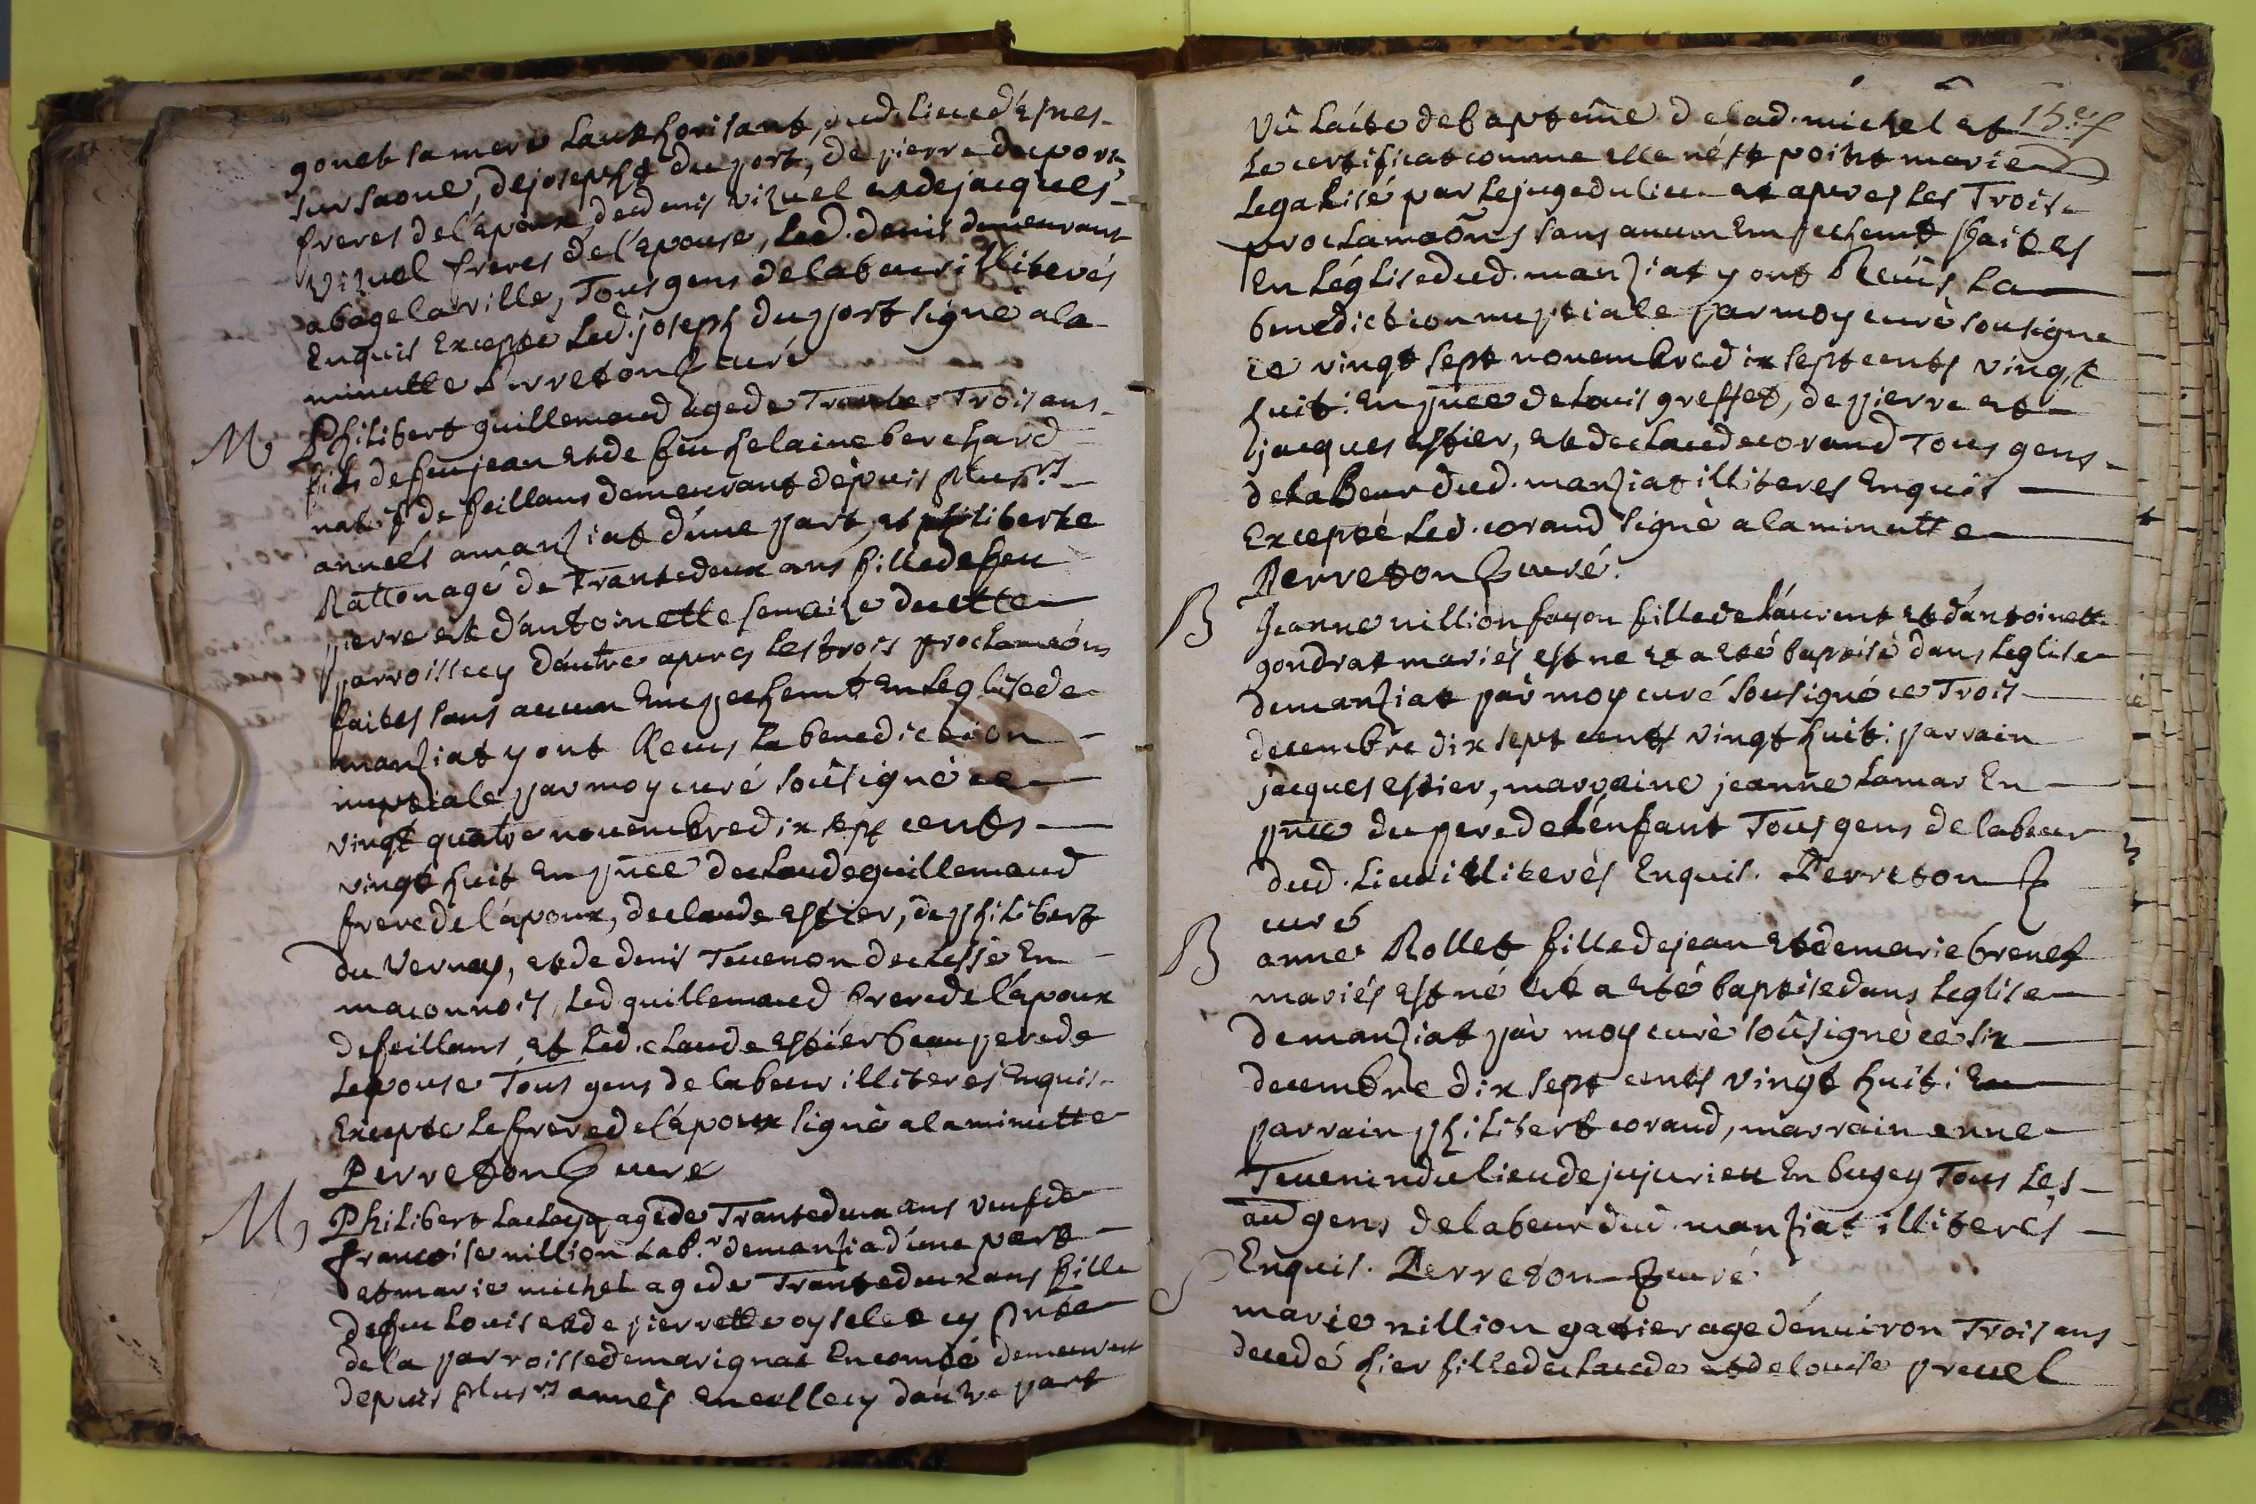 gonet sa mere lauthorisant, dud. lieu d'Espres
sur saone, de joseph du port, de pierre du port
freres de l'epoux, de denis vizuel et de jacques
vizuel freres de l'epouse, led. denis demeurant
a bage la ville, Tous gens de labeur illiterés
Enquis Excepte led. joseph du port signé a la
minutte Perreton curé
M Philibert guillemaud agé de Trante Trois ans
fils de feu jean et de feu helaine berchard
natif de feillans demeurant depuis plusrs
années a manziat d'une part, et philiberte
Ratton agé de Trante deux ans fille de feu
pierre et d'antoinette semeize de cette
parroisse cy d'autre apres les trois proclamaons
faites sans aucun Empechemt En leglise de
manziat y ont Receus la benediction
nuptiale par moy curé soûsigné ce
vingt quatre novembre dix sept cents
vingt huit En pnce de claude guillemaud
frere de l'epoux, de claude Estier, de philibert
du Vernay, et de denis Tevenon de lessé En
maconnois, led guillemaud frere de l'epoux
de feillans, et led. claude Estier beau pere de
lepouse Tous gens de labeur illiteres Enquis
Excepté le frere de l'epoux signé a la minutte
Perreton curé
M Philibert agé de Trante deux ans veuf de
francoise nillion labr de manzia d'une part
et marie michel agé de Trante deux ans fille
de feu Louis et de pierrette oyselet cy pnte
de la parroisse de marignat En comté demeurant
depuis plusrs annés En celle cy d'autre part
15e f
Vû lacte de baptême de lad. michel et
le certificat comme elle n'est point mariée
legalisé par le juge du lieu et apres les Trois
proclamaons sans aucun Empechemt faites
En l'église dud. manziat y ont Receûs la
benediction nuptiale par moy curé sousigne
ce vingt sept novembre dix sept cents vingt
huit: En pnce de Louis greffet, de pierre et
jacques Estier, et de claude corand Tous gens
de labeur dud. manziat illiteres Enquis
Excepté led. corand signé a la minutte
Perreton curé.
B Jeanne nillion fayon fille de laurent et d'antoinette
gondrat mariés est né et a eté baptisé dans leglise
de manziat par moy curé sousigné ce Trois
decembre dix sept cents vingt huit: parrain
jacques estier, marraine jeanne lamar En
pnce du pere de l'enfant Tous gens de labeur
dud. lieu illiterés Enquis. Perreton
curé
B anne Rollet fille de jean et de marie brenet
mariés est né et a eté baptise dans leglise
de manziat par moy curé soûsigné ce six
decembre dix sept cents vingt huit: En
parrain philibert corand, marrain enne
Tevenin du lieu de jujurieu En bugey Tous les
gens de labeur dud manziat illiterés
Enquis. Perreton curé
S marie nillion gatier agé d'environ Trois ans
decedé hier fille de claude et de louise prevel